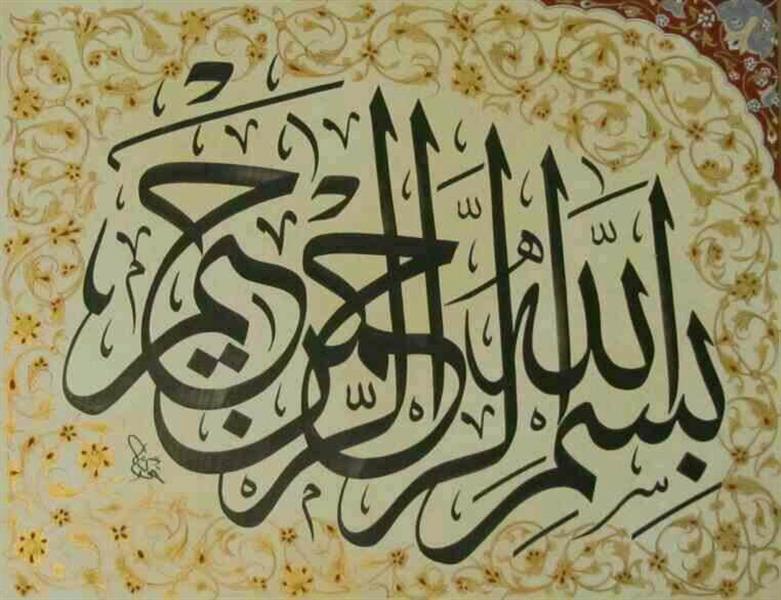 بِسْمِ اللَّهِ الرَّحْمٰنِ الرَّحِيمِ